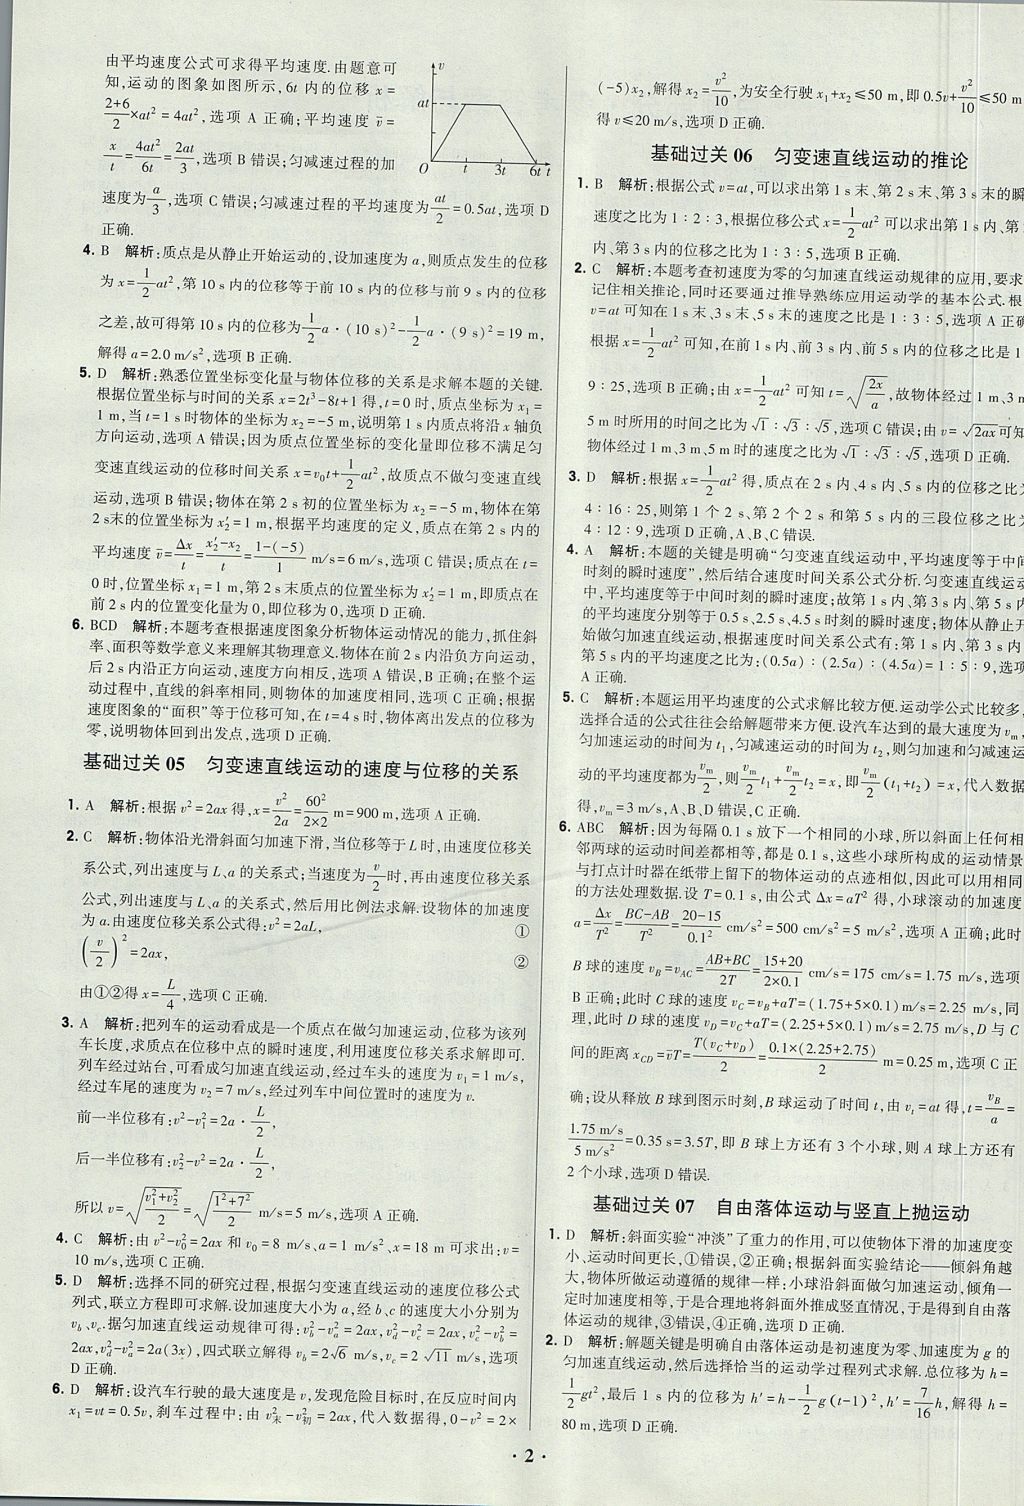 由平均速度公式可求得平均速度.由题意可
知,运动的图象如图所示,6t 内的位移 x=
(2+6)/2×at²=4at²,选项 A 正确;平均速度 v̄=
x/t=4at²/6t=2at/3,选项 B 错误;匀减速过程的加
速度为a/3,选项 C 错误;匀减速过程的平均速度为at/2=0.5at,选项 D
正确.
v
at
O t 3t 6t t
4. B 解析:质点是从静止开始运动的,设加速度为 a,则质点发生的位移
为 x=1/2at²,第 10 s 内的位移等于前 10 s 内的位移与前 9 s 内的位移
之差,故可得第 10 s 内的位移为1/2a·(10 s)²-1/2a·(9 s)²=19 m,
解得 a=2.0 m/s²,选项 B 正确.
5. D 解析:熟悉位置坐标变化量与物体位移的关系是求解本题的关键.
根据位置坐标与时间的关系 x=2t³-8t+1 得,t=0 时,质点坐标为 x₁=
1 m,当 t=1 s 时物体的坐标为 x₂=-5 m,说明第 1 s 内质点将沿 x 轴负
方向运动,选项 A 错误;因为质点位置坐标的变化量即位移不满足匀
变速直线运动的位移时间关系 x=v₀t+1/2at²,故质点不做匀变速直线
运动,选项 B 错误;物体在第 2 s 初的位置坐标为 x₂=-5 m,物体在第
2 s末的位置坐标为 x₂′=1 m,根据平均速度的定义,质点在第 2 s 内的
平均速度 v̄=Δx/t=(x₂′-x₂)/t=(1-(-5))/1 m/s=6 m/s,选项 C 错误;质点在 t=
0 时,位置坐标 x₁=1 m,第 2 s 末质点的位置坐标 x₂′=1 m,即质点在
前 2 s 内的位置变化量为 0,即位移为 0,选项 D 正确.
6. BCD 解析:本题考查根据速度图象分析物体运动情况的能力,抓住斜
率、面积等数学意义来理解其物理意义.物体在前 2 s 内沿负方向运动,
后 2 s 内沿正方向运动,速度方向相反,选项 A 错误,B 正确;在整个运
动过程中,直线的斜率相同,则物体的加速度相同,选项 C 正确;根据
速度图象的“面积”等于位移可知,在 t=4 s 时,物体离出发点的位移为
零,说明物体回到出发点,选项 D 正确.
基础过关 05 匀变速直线运动的速度与位移的关系
1. A 解析:根据 v²=2ax 得,x=v²/2a=60²/(2×2) m=900 m,选项 A 正确.
2. C 解析:物体沿光滑斜面匀加速下滑,当位移等于 L 时,由速度位移关
系公式,列出速度与 L、a 的关系式;当速度为v/2时,再由速度位移关系
公式,列出速度与 L、a 的关系式,然后用比例法求解.设物体的加速度
为 a.由速度位移关系公式得:v²=2aL, ①
(v/2)²=2ax, ②
由①②得 x=L/4,选项 C 正确.
3. A 解析:把列车的运动看成是一个质点在做匀加速运动,位移为该列
车长度,求质点在位移中点的瞬时速度,利用速度位移关系求解即可.
列车经过站台,可看成匀加速直线运动,经过车头的速度为 v₁=1 m/s,
经过车尾的速度为 v₂=7 m/s,经过列车中间位置时的速度为 v.
前一半位移有:v²-v₁²=2a·L/2,
后一半位移有:v₂²-v²=2a·L/2,
所以 v=√((v₁²+v₂²)/2)=√((1²+7²)/2) m/s=5 m/s,选项 A 正确.
4. C 解析:由 v²-v₀²=2ax 和 v₀=8 m/s、a=1 m/s²、x=18 m 可求出:v=
10 m/s,选项 C 正确.
5. D 解析:选择不同的研究过程,根据匀变速直线运动的速度位移公式
列式,联立方程即可求解.设加速度大小为 a,经 b、c 的速度大小分别为
v_b、v_c.据匀加速直线运动规律可得:v_b²-v_a²=2ax,v_d²-v_c²=2ax,v_c²-v_b²=
2ax,v_d²-v_a²=2a(3x),四式联立解得 v_b=2√6 m/s,v_c=2√11 m/s,选项
D 正确.
6. D 解析:设汽车行驶的最大速度是 v,发现危险目标时,在反应时间内
x₁=vt=0.5v,刹车过程中:由 v末²-v初²=2ax,代入数据得,0-v²=2×
(-5)x₂,解得 x₂=v²/10,为安全行驶 x₁+x₂≤50 m,即 0.5v+v²/10≤50 m
得 v≤20 m/s,选项 D 正确.
基础过关 06 匀变速直线运动的推论
1. B 解析:根据公式 v=at,可以求出第 1 s 末、第 2 s 末、第 3 s 末的瞬
速度之比为 1∶2∶3,根据位移公式 x=1/2at² 可以求出第 1 s 内、第
内、第 3 s 内的位移之比为 1∶3∶5,选项 B 正确.
2. C 解析:本题考查初速度为零的匀加速直线运动规律的应用,要求
记住相关推论,同时还要通过推导熟练应用运动学的基本公式.根
v=at 可知在 1 s 末、3 s 末、5 s 末的速度之比是 1∶3∶5,选项 A 正确
根据 x=1/2at² 可知,在前 1 s 内、前 3 s 内、前 5 s 内的位移之比是 1
9∶25,选项 B 正确;由 x=1/2at² 可知 t=√(2x/a),故物体经过 1 m、3 m
5 m 时所用的时间之比为 √1∶√3∶√5,选项 C 错误;由 v=√(2ax)可知
物体经过 1 m、3 m、5 m 时的速度之比为 √1∶√3∶√5,选项 D 正确.
3. D 解析:根据 x=1/2at² 得,质点在 2 s 内、4 s 内、5 s 内的位移之比
4∶16∶25,则第 1 个 2 s、第 2 个 2 s 和第 5 s 内的三段位移之比
4∶12∶9,选项 D 正确,A、B、C 错误.
4. A 解析:本题的关键是明确“匀变速直线运动中,平均速度等于中间
时刻的瞬时速度”,然后结合速度时间关系公式分析.匀变速直线运动
中,平均速度等于中间时刻的瞬时速度;故第 1 s 内、第 3 s 内、第 5 s 内
的平均速度分别等于 0.5 s、2.5 s、4.5 s 时刻的瞬时速度;物体从静止开
始做匀加速直线运动,根据速度时间关系公式有;第 1 s 内、第 3 s 内、
第 5 s 内的平均速度之比为:(0.5a)∶(2.5a)∶(4.5a)=1∶5∶9,选项
A 正确.
5. C 解析:本题运用平均速度的公式求解比较方便.运动学公式比较多,
选择合适的公式往往会给解题带来方便.设汽车达到的最大速度为 v_m,
匀加速运动的时间为 t₁,匀减速运动的时间为 t₂,则匀加速和匀减速运
动的平均速度都为v_m/2,则v_m/2 t₁+v_m/2 t₂=x,即v_m/2(t₁+t₂)=x,代入数据
得,v_m=3 m/s,A、B、D 错误,C 正确.
6. ABC 解析:因为每隔 0.1 s 放下一个相同的小球,所以斜面上任何相
邻两球的运动时间差都相等,都是 0.1 s,这些小球所构成的运动情景
与打点计时器在纸带上留下的物体运动的点迹相似,因此可以用相同
的方法处理数据.设 T=0.1 s,由公式 Δx=aT² 得,小球滚动的加速度
a=Δx/T²=(BC-AB)/T²=(20-15)/0.1² cm/s²=500 cm/s²=5 m/s²,选项 A 正确;此时
B 球的速度 v_B=v_AC=(AB+BC)/2T=(15+20)/(2×0.1) cm/s=175 cm/s=1.75 m/s,选项
B 正确;此时 C 球的速度 v_C=v_B+aT=(1.75+5×0.1) m/s=2.25 m/s,同
理,此时 D 球的速度 v_D=v_C+aT=(2.25+5×0.1) m/s=2.75 m/s,D 与 C
间的距离 x_CD=v̄T=T(v_C+v_D)/2=0.1×(2.25+2.75)/2 m=0.25 m,选项 C 正
确;设从释放 B 球到图示时刻,B 球运动了时间 t,由 v_t=at 得,t=v_B/a=
(1.75 m/s)/(5 m/s²)=0.35 s=3.5T,即 B 球上方还有 3 个小球,则 A 球上方还有
2 个小球,选项 D 错误.
基础过关 07 自由落体运动与竖直上抛运动
1. D 解析:斜面实验“冲淡”了重力的作用,可以使物体下滑的加速度变
小、运动时间更长,①错误,②正确;根据斜面实验结论——倾斜角越
大,物体所做运动遵循的规律一样;小球沿斜面做匀加速运动,倾角一
定时加速度相等,于是合理地将斜面外推成竖直情况,于是得到自由落
体运动的规律,③错误,④正确,选项 D 正确.
2. D 解析:解题关键是明确自由落体运动是初速度为零、加速度为 g 的
匀加速直线运动,然后选择恰当的运动学过程列式求解.总位移为 h=
1/2gt²,最后 1 s 内的位移为 h′=h-1/2g(t-1)²,h′=7/16h,解得 h=
80 m,选项 D 正确.
· 2 ·